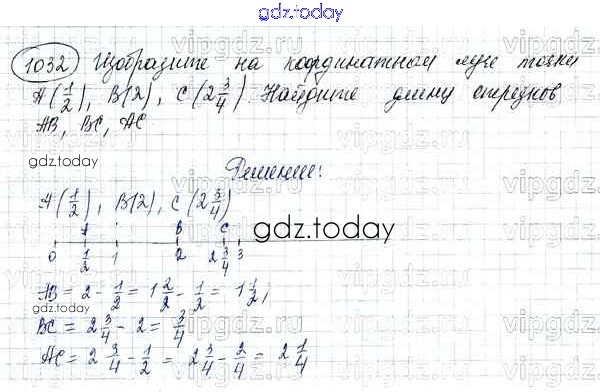 gdz.today
1032 Изобразите на координатном луче точки
A(1/2), B(2), C(2 3/4). Найдите длину отрезков
AB, BC, AC
gdz.today
Решение:
A(1/2), B(2), C(2 3/4)
A B C
gdz.today
0 1/2 1 2 2 3/4 3
AB = 2 - 1/2 = 1 2/2 - 1/2 = 1 1/2;
BC = 2 3/4 - 2 = 3/4
AC = 2 3/4 - 1/2 = 2 3/4 - 2/4 = 2 1/4